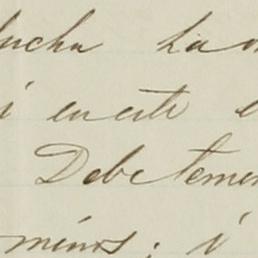 lucha La
i en este e
Debe temer
minos; i